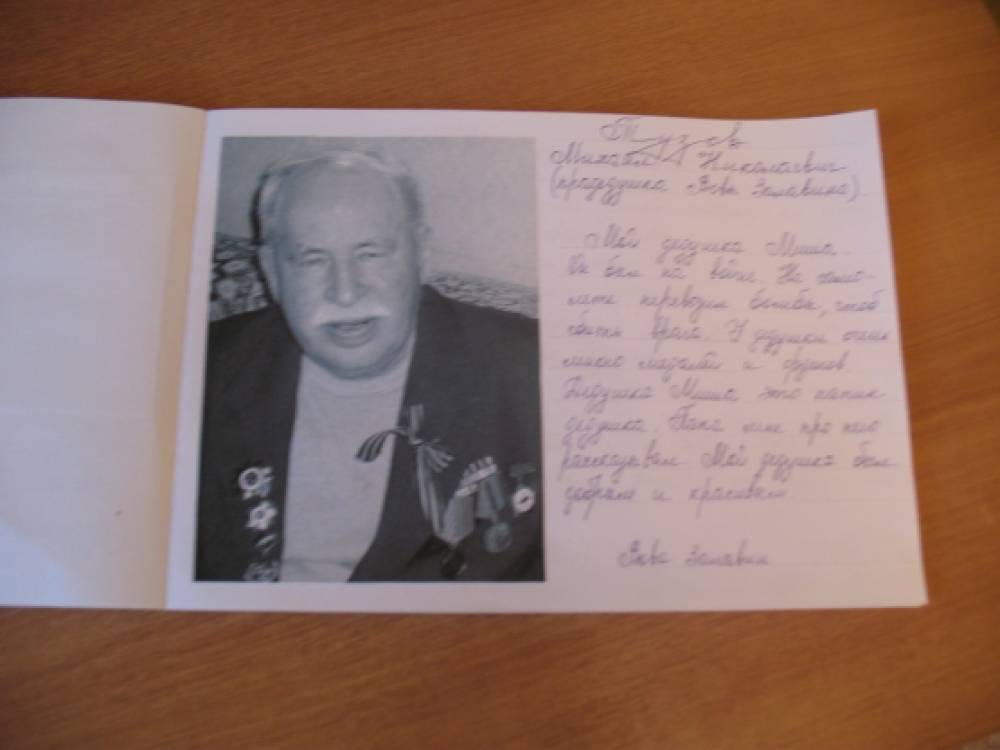 Тузов
Михаил Николаевич
(прадедушка Вовы Залавина).
Мой дедушка Миша.
Он был на войне. На само-
лете перевозил бомбы, чтоб
сбить врага. У дедушки очень
много медалей и орденов.
Дедушка Миша это папин
дедушка. Папа мне про него
рассказывал. Мой дедушка был
добрым и красивым
Вова Залавин